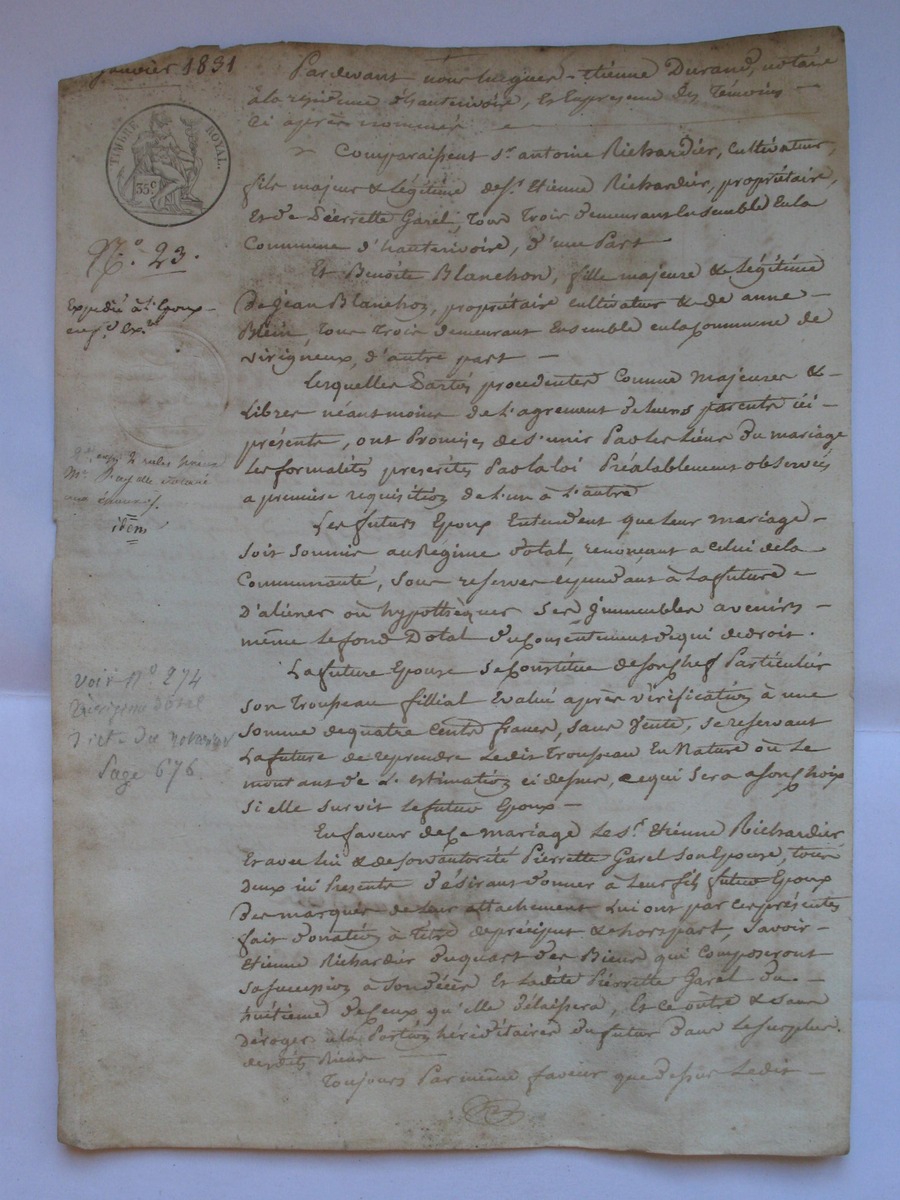 janvier 1831
TIMBRE ROYAL.
35c
No. 23.
Expédié à l'Epoux
idem
voir No. 274
Régime dotal
Dict. du notariat
Page 676.
Pardevant nous Jacques-Etienne Durand, notaire
à la résidence d'hauterivoire, et en presence des Témoins
ci après nommés
Comparaissent Sr. antoine Richardier, Cultivateur,
fils majeur & légitime de Sr. Etienne Richardier, propriétaire,
Et de Pierrette Garel, tous Trois demeurant Ensemble En la
Commune d'hauterivoire, d'une Part
Et Benoite Blanchon, fille majeure & Légitime
De jean Blanchon, propriétaire cultivateur & de anne
Blein, tous Trois demeurant Ensemble en la Commune de
virigneux, d'autre part
Lesquelles Parties procedentes Comme Majeures &
Libres néantmoins de l'agrement de leurs parents ici
présents, ont Promises de s'unir Par les liens du mariage
les formalités prescrites Par la loi Préalablement observées
a premiere requisition de l'un à l'autre
Les futurs Epoux Entendent que leur mariage
soit soumis au Régime Dotal, renonçant a celui de la
Communauté, sous reserve cependant à la future
D'aliéner ou hypothèquer ses Immeubles avenirs
même le fond Dotal du Consentement de qui de droit.
La future Epouse se Constitue de son chef Particulier
son Trousseau fillial Evalué après vérification à une
somme de quatre Cents francs, sans vente, se reservant
La future de reprendre ledit Trousseau En Nature ou le
montant de l'estimation ci dessus, ce qui sera a son choix
si elle survit le futur Epoux
En faveur de Ce mariage le Sr. Etienne Richardier
Et avec lui & de son autorité Pierrette Garel son Epouse, tous
Deux ici Presents désirant donner à leur fils futur Epoux
Des marques de leur attachement lui ont par ces présentes
fait donation à titre de préciput & hors part, savoir
Etienne Richardier du quart des Biens qui Composeront
sa succession à son décès Et ladite Pierrette Garel du
huitième de Ceux qu'elle délaissera, Et ce outre & sans
Déroger à la Portion héréditaire du futur dans le surplus
desdits Biens
Toujours Par même faveur que dessus Ledit